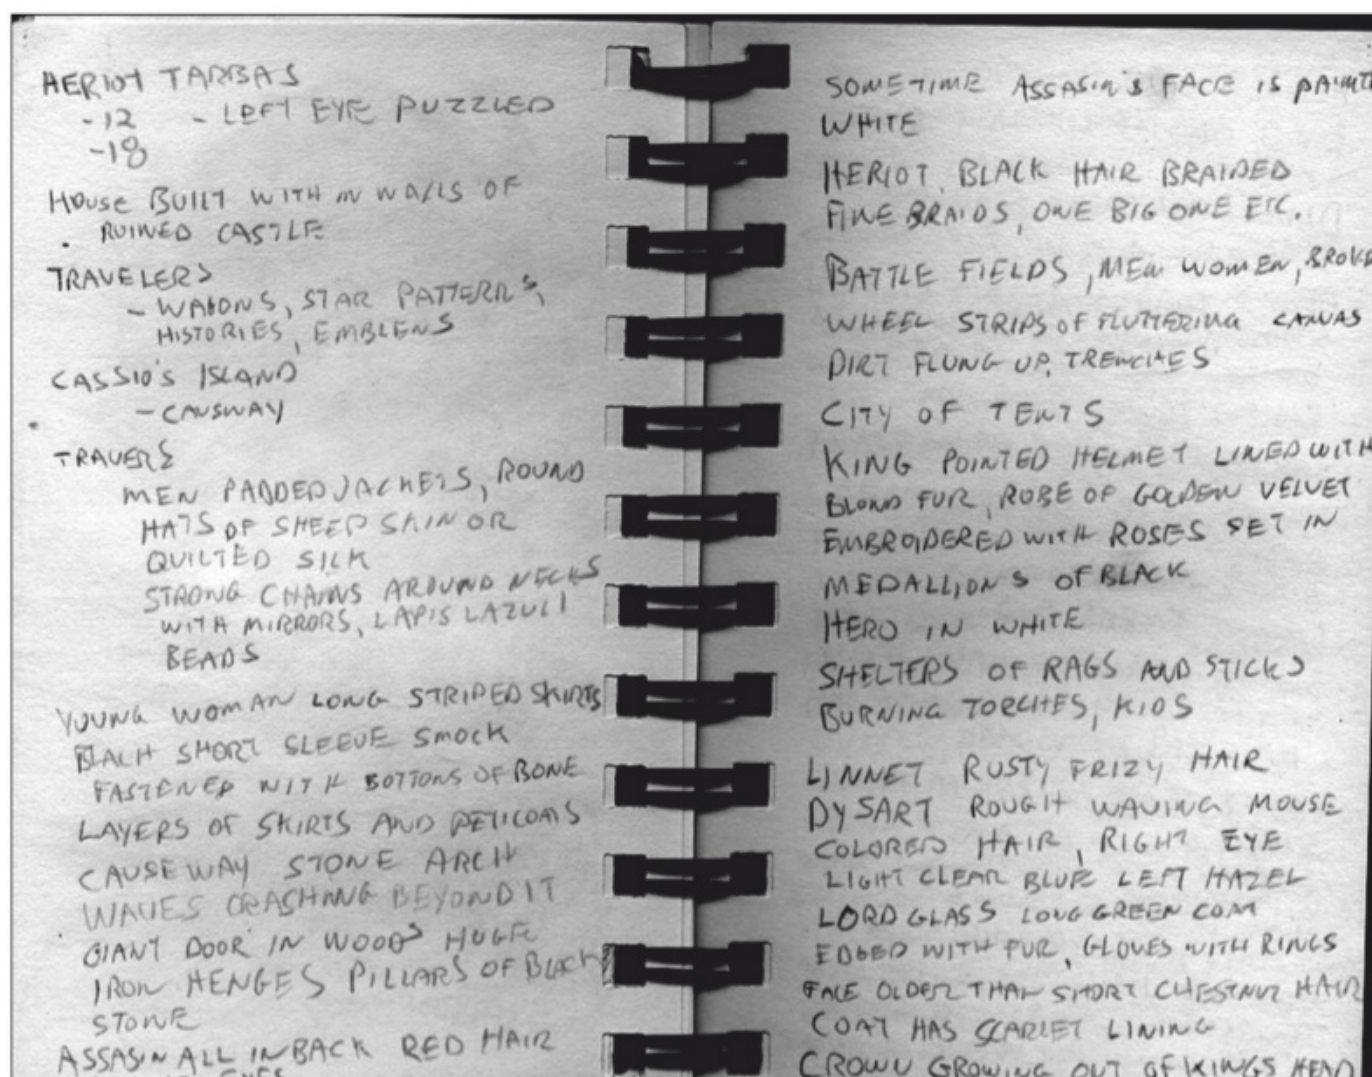 HERIOT TARBAS
-12 - LEFT EYE PUZZLED
-18
HOUSE BUILT WITH IN WALLS OF
RUINED CASTLE
TRAVELERS
- WAGONS, STAR PATTERNS,
HISTORIES, EMBLENS
CASSIO'S ISLAND
- CAUSWAY
TRAVERS
MEN PADDED JACKETS, ROUND
HATS OF SHEEP SKIN OR
QUILTED SILK
STRONG CHAINS AROUND NECKS
WITH MIRRORS, LAPIS LAZULI
BEADS
YOUNG WOMAN LONG STRIPED SKIRTS
BLACK SHORT SLEEVE SMOCK
FASTENED WITH BOTTONS OF BONE
LAYERS OF SKIRTS AND PETICOATS
CAUSEWAY STONE ARCH
WAVES CRASHING BEYOND IT
GIANT DOOR IN WOODS HUGE
IRON HENGES PILLARS OF BLACK
STONE
ASSASIN ALL IN BACK RED HAIR
EYES
SOMETIME ASSASIN'S FACE IS PAINTE
WHITE
HERIOT, BLACK HAIR BRAIDED
FINE BRAIDS, ONE BIG ONE ETC.
BATTLE FIELDS, MEN WOMEN, BROKE
WHEEL STRIPS OF FLUTTERING CANVAS
DIRT FLUNG UP, TRENCHES
CITY OF TENTS
KING POINTED HELMET LINED WITH
BLOND FUR, ROBE OF GOLDEN VELVET
EMBROIDERED WITH ROSES SET IN
MEDALLIONS OF BLACK
HERO IN WHITE
SHELTERS OF RAGS AND STICKS
BURNING TORCHES, KIDS
LINNET RUSTY FRIZY HAIR
DYSART ROUGH WAVING MOUSE
COLORED HAIR, RIGHT EYE
LIGHT CLEAR BLUE LEFT HAZEL
LORD GLASS LONG GREEN COAT
EDGED WITH FUR, GLOVES WITH RINGS
FACE OLDER THAN SHORT CHESTNUT HAIR
COAT HAS SCARLET LINING
CROWN GROWING OUT OF KINGS HEAD